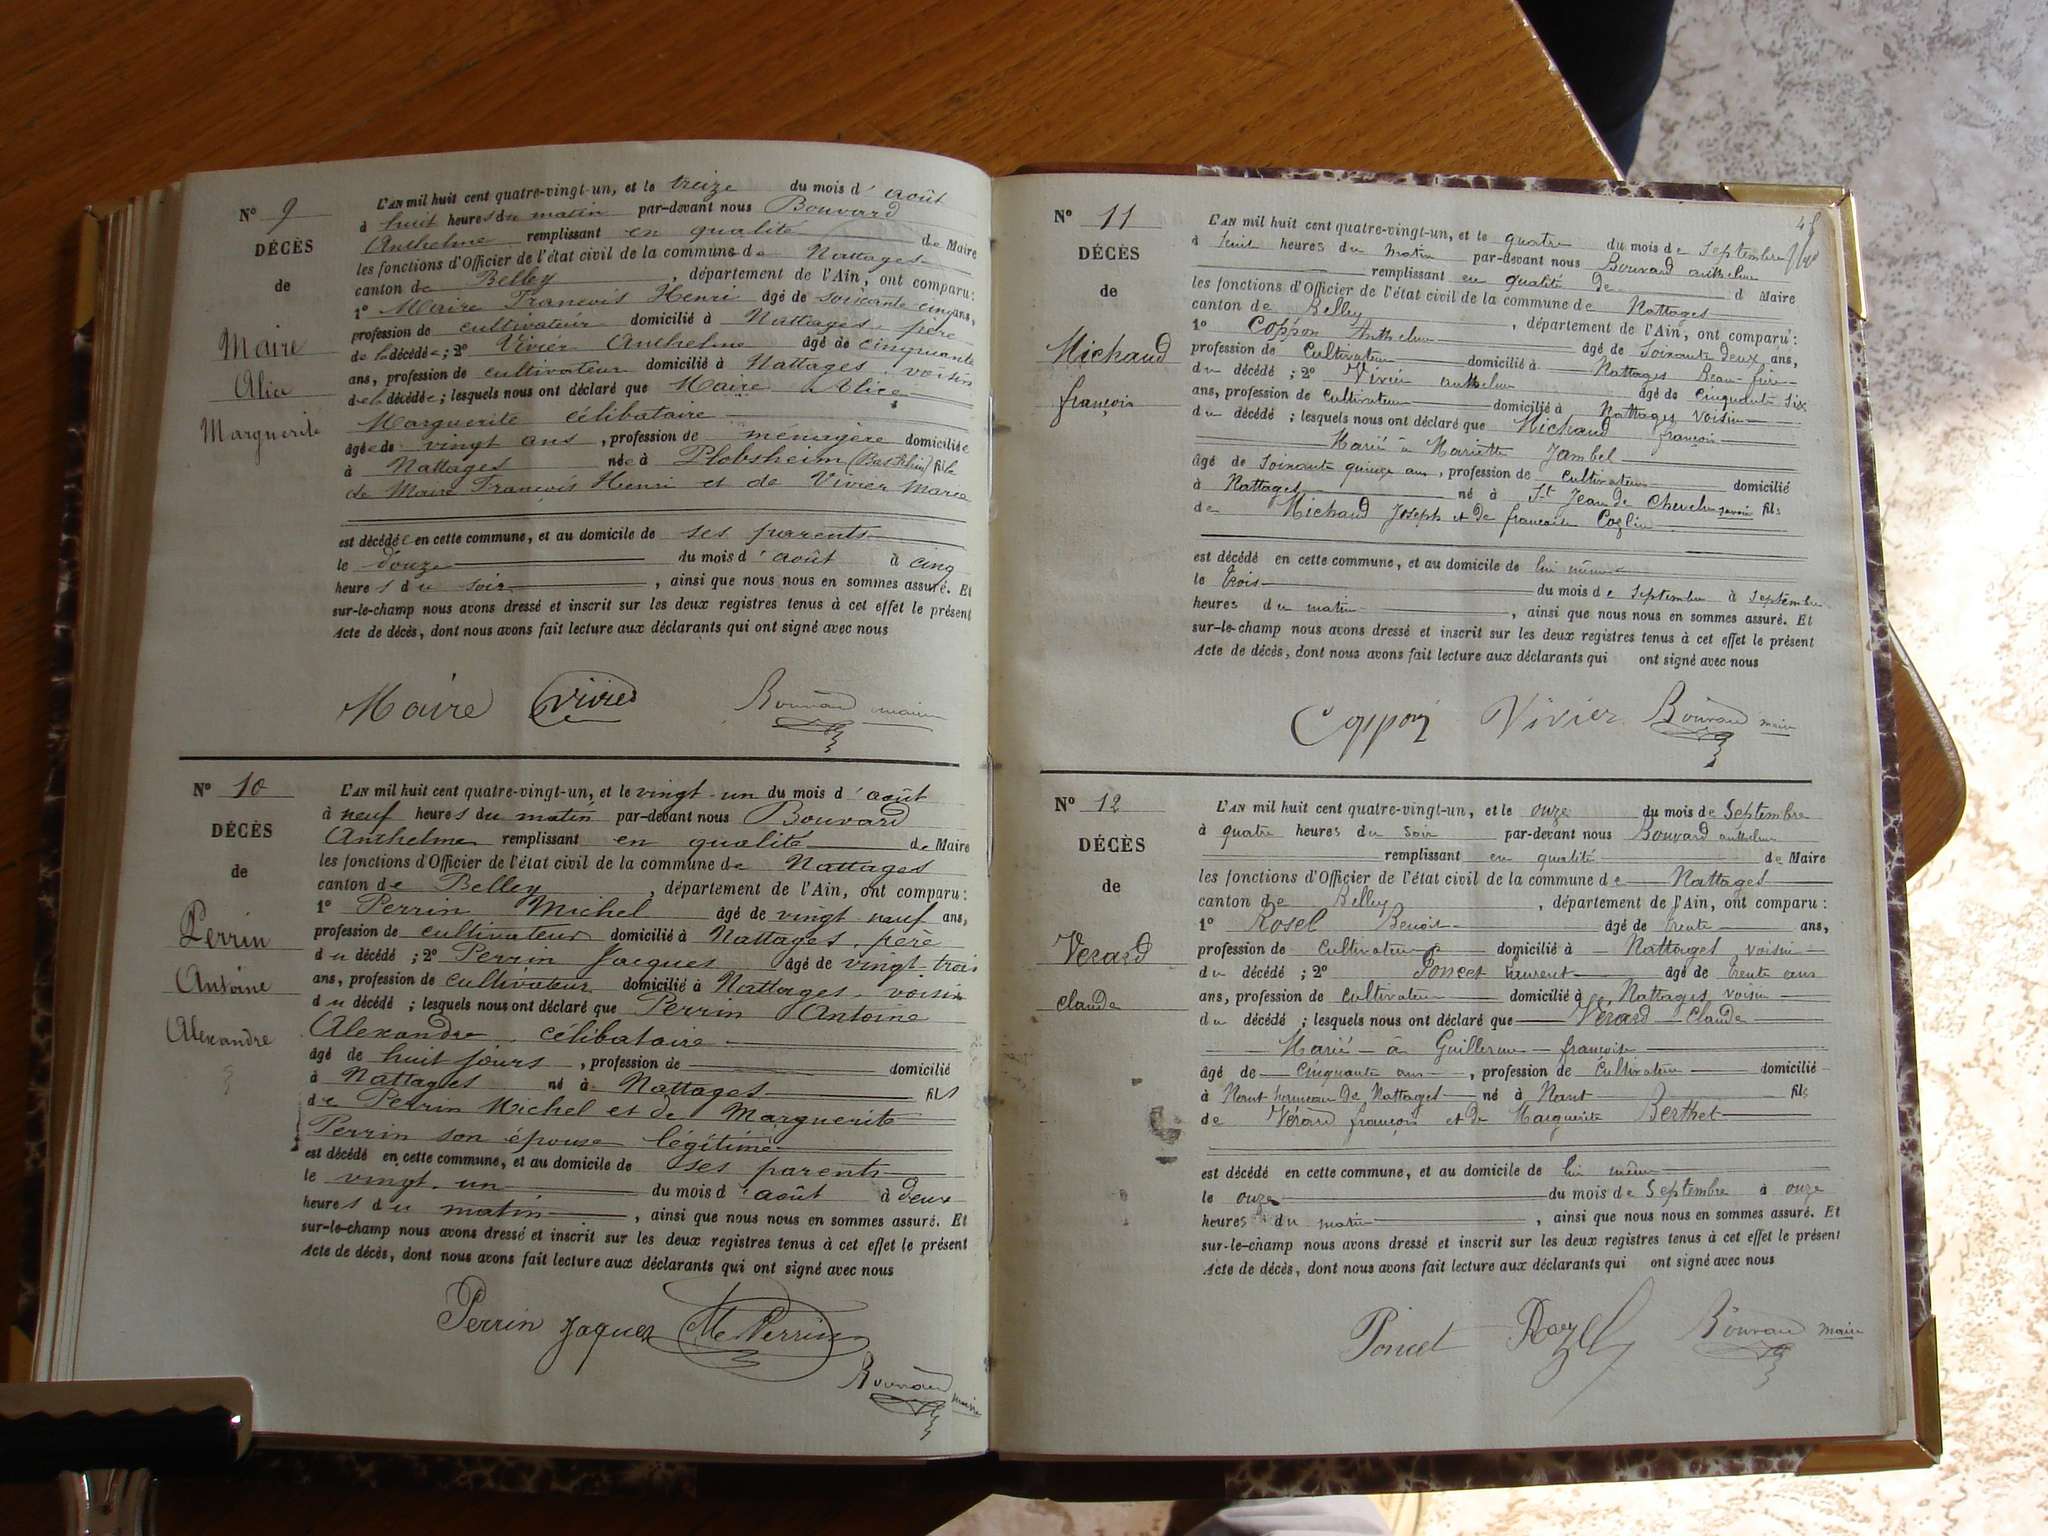 N° 9
DÉCÈS
de
Maire
Alice
Marguerite
L'AN mil huit cent quatre-vingt-un, et le treize du mois d'août
à huit heures du matin par-devant nous Bouvard
Anthelme remplissant en qualité de Maire
les fonctions d'Officier de l'état civil de la commune de Nattages
canton de Belley, département de l'Ain, ont comparu:
1° Maire François Henri âgé de soixante cinq ans,
profession de cultivateur domicilié à Nattages, père
de la décédée; 2° Vivier Anthelme âgé de cinquante
ans, profession de cultivateur domicilié à Nattages, voisin
de la décédée; lesquels nous ont déclaré que Maire Alice
Marguerite célibataire
âgée de vingt ans, profession de ménagère domiciliée
à Nattages née à Plobsheim (Bas Rhin) fille
de Maire François Henri et de Vivier Marie
est décédée en cette commune, et au domicile de ses parents
le douze du mois d'août à cinq
heures du soir, ainsi que nous nous en sommes assuré. Et
sur-le-champ nous avons dressé et inscrit sur les deux registres tenus à cet effet le présent
Acte de décès, dont nous avons fait lecture aux déclarants qui ont signé avec nous
Maire Vivier Bouvard maire
N° 10
DÉCÈS
de
Perrin
Antoine
Alexandre
L'AN mil huit cent quatre-vingt-un, et le vingt-un du mois d'août
à neuf heures du matin par-devant nous Bouvard
Anthelme remplissant en qualité de Maire
les fonctions d'Officier de l'état civil de la commune de Nattages
canton de Belley, département de l'Ain, ont comparu:
1° Perrin Michel âgé de vingt-neuf ans,
profession de cultivateur domicilié à Nattages, père
du décédé; 2° Perrin Jacques âgé de vingt-trois
ans, profession de cultivateur domicilié à Nattages, voisin
du décédé; lesquels nous ont déclaré que Perrin Antoine
Alexandre, célibataire
âgé de huit jours, profession de domicilié
à Nattages né à Nattages fils
de Perrin Michel et de Marguerite
Perrin son épouse légitime
est décédé en cette commune, et au domicile de ses parents
le vingt-un du mois d'août à deux
heures du matin, ainsi que nous nous en sommes assuré. Et
sur-le-champ nous avons dressé et inscrit sur les deux registres tenus à cet effet le présent
Acte de décès, dont nous avons fait lecture aux déclarants qui ont signé avec nous
Perrin Jaques Perrin
Bouvard maire
N° 11
DÉCÈS
de
Michaud
françois
L'AN mil huit cent quatre-vingt-un, et le quatre du mois de Septembre
à huit heures du matin par-devant nous Bouvard anthelme
remplissant en qualité de d Maire
les fonctions d'Officier de l'état civil de la commune de Nattages
canton de Belley, département de l'Ain, ont comparu:
1° Coppon Anthelme âgé de Soixante deux ans,
profession de Cultivateur domicilié à Nattages Beau-frère
du décédé; 2° Vivier anthelme âgé de Cinquante six
ans, profession de Cultivateur domicilié à Nattages voisin
du décédé; lesquels nous ont déclaré que Michaud françois
Marié à Mariette Jambel
âgé de soixante quinze ans, profession de Cultivateur domicilié
à Nattages né à St Jean de Chevelu savoie fils
de Michaud Joseph et de francoise
est décédé en cette commune, et au domicile de lui même
le trois du mois de Septembre à Septembre
heures du matin, ainsi que nous nous en sommes assuré. Et
sur-le-champ nous avons dressé et inscrit sur les deux registres tenus à cet effet le présent
Acte de décès, dont nous avons fait lecture aux déclarants qui ont signé avec nous
Coppon Vivier Bouvard maire
N° 12
DÉCÈS
de
Verard
claude
L'AN mil huit cent quatre-vingt-un, et le onze du mois de Septembre
à quatre heures du Soir par-devant nous Bouvard anthelme
remplissant en qualité de Maire
les fonctions d'Officier de l'état civil de la commune de Nattages
canton de Belley, département de l'Ain, ont comparu:
1° Rosel Benoit âgé de trente ans,
profession de Cultivateur domicilié à Nattages voisin
du décédé; 2° Poncet Laurent âgé de trente ans
ans, profession de cultivateur domicilié à Nattages voisin
du décédé; lesquels nous ont déclaré que Verard Claude
Marié à Guillerme françoise
âgé de Cinquante ans, profession de Cultivateur domicilié
à Nant hameau de Nattages né à Nant fils
de Vérard françois et de Marguerite Berthet
est décédé en cette commune, et au domicile de lui même
le onze du mois de Septembre à onze
heures du matin, ainsi que nous nous en sommes assuré. Et
sur-le-champ nous avons dressé et inscrit sur les deux registres tenus à cet effet le présent
Acte de décès, dont nous avons fait lecture aux déclarants qui ont signé avec nous
Poncet Rozel Bouvard maire